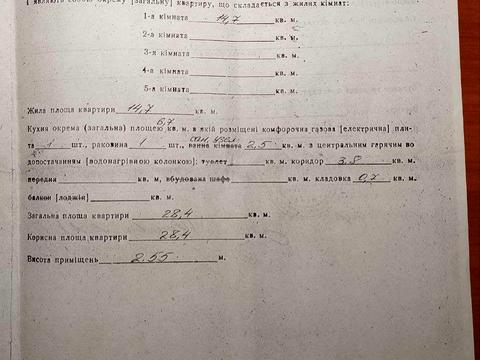 являють собою окрему [загальну] квартиру, що складається з жилих кімнат:
1-а кімната 14,7 кв. м.
2-а кімната кв. м.
3-я кімната кв. м.
4-а кімната кв. м.
5-а кімната кв. м.
Жила площа квартири 14,7 кв. м.
Кухня окрема (загальна) площею 6,7 кв. м. в якій розміщені комфорочна газова [електрична] пли-
та 1 шт., раковина 1 шт., ванна кімната сан. узел 2,5 кв. м. з центральним гарячим во
допостачанням [водонагрівною колонкою]: туалет кв. м. коридор 3,8 кв. м.
передня кв. м, вбудована шафа кв. м. кладовка 0,7 кв. м.
балкон [лоджія] кв. м.
Загальна площа квартири 28,4 кв. м.
Корисна площа квартири 28,4 кв. м.
Висота приміщень 2.55 м.